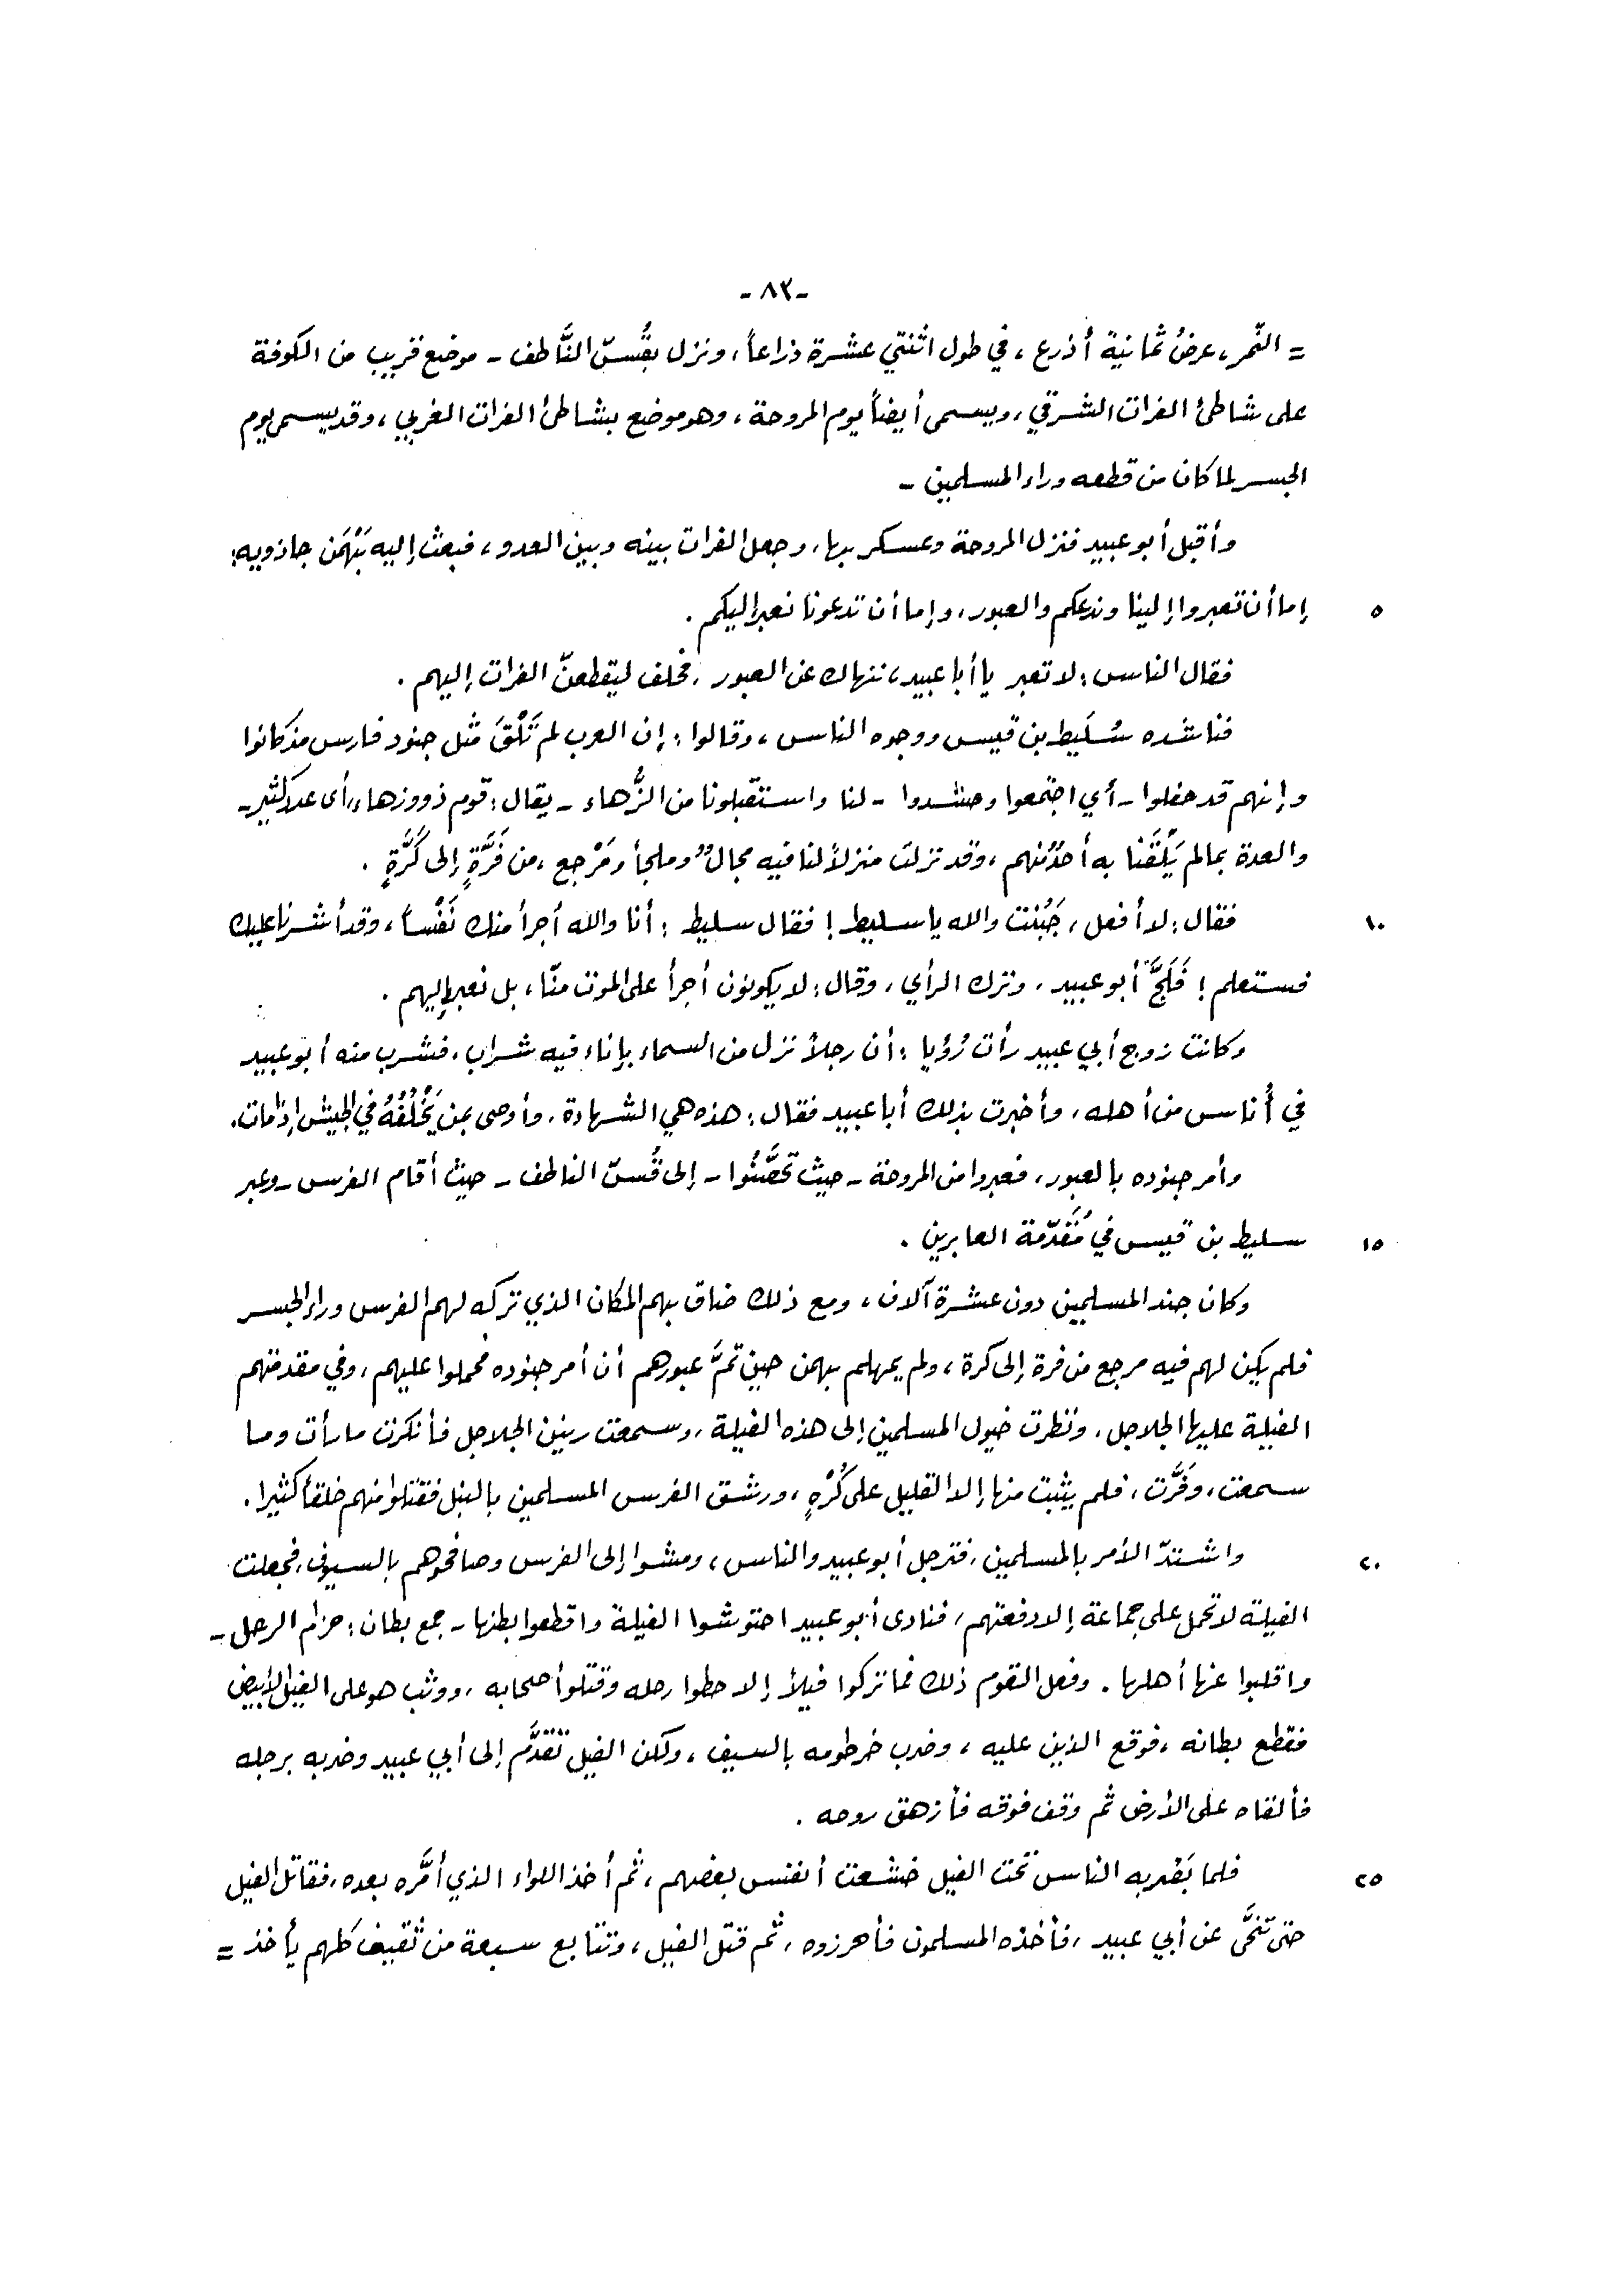 -٨٣-
= النّمر، عرضُ ثمانية أذرع، في طول اثنتي عشرة ذراعاً، ونزل بقُسّ النَّاطف - موضع قريب من الكوفة
على شاطئ الفرات الشرقي، ويسمى أيضاً يوم المروحة، وهو موضع بشاطئ الفرات الغربي، وقد يسمى يوم
الجسر لما كان من قطعه وراء المسلمين -
وأقبل أبو عبيد فنزل المروحة وعسكر بها، وجعل الفرات بينه وبين العدو، فبعث إليه بَهْمَن جاذويه:
٥ إما أن تعبروا إلينا وندعكم والعبور، وإما أن تدعونا نعبر إليكم.
فقال الناس: لا تعبر يا أبا عبيد، ننهاك عن العبور، فحلف ليقطعنّ الفرات إليهم.
فناشده سُلَيط بن قيس ووجوه الناس، وقالوا: إن العرب لم تَلْقَ مثل جنود فارس مذ كانوا
وإنهم قد حفلوا - أي اجتمعوا وحشدوا - لنا واستقبلونا من الزُّهاء - يقال: قوم ذوو زهاء، أي عدد كثير -
والعدة بما لم يَلْقَنا به أحدٌ منهم، وقد نزلت منزلاً لنا فيه مجالٌ وملجأ ومَرْجع، من فَرَّةٍ إلى كَرَّةٍ.
١٠ فقال: لا أفعل، جَبُنْتَ والله يا سليط! فقال سليط: أنا والله أجرأ منك نَفْساً، وقد أشرنا عليك
فستعلم! فَلَجَّ أبو عبيد، وترك الرأي، وقال: لا يكونون أجرأ على الموت منّا، بل نعبر إليهم.
وكانت زوج أبي عبيد رأت رُؤيا: أن رجلاً نزل من السماء بإناء فيه شراب، فشرب منه أبو عبيد
في أُناس من أهله، وأخبرت بذلك أبا عبيد فقال: هذه هي الشهادة، وأوصى بمن يَخْلُفُهُ في الجيش إذا مات.
وأمر جنوده بالعبور، فعبروا من المروحة - حيث تحصَّنُوا - إلى قُسّ الناطف - حيث أقام الفرس - وعبر
١٥ سليط بن قيس في مُقَدّمة العابرين.
وكان جند المسلمين دون عشرة آلاف، ومع ذلك ضاق بهم المكان الذي تركه لهم الفرس وراء الجسر
فلم يكن لهم فيه مرجع من فرة إلى كرة، ولم يمهلهم بهمن حين تمَّ عبورهم أن أمر جنوده فحملوا عليهم، وفي مقدمتهم
الفيلة عليها الجلاجل، ونظرت خيول المسلمين إلى هذه الفيلة، وسمعت رنين الجلاجل فأنكرت ما رأت وما
سمعت، وَفَرَّت، فلم يثبت منها إلا القليل على كُرْهٍ، ورشق الفرس المسلمين بالنبل فقتلوا منهم خلقاً كثيرا.
٢٠ واشتدّ الأمر بالمسلمين، فترجل أبو عبيد والناس، ومشوا إلى الفرس وصافحوهم بالسيوف، فجعلت
الفيلة لا تحمل على جماعة إلا دفعتهم، فنادى أبو عبيد احتوشوا الفيلة واقطعوا بطنها - جمع بطان: حزام الرحل -
واقلبوا عنها أهلها. وفعل القوم ذلك فما تركوا فيلاً إلا حطوا رحله وقتلوا أصحابه، ووثب هو على الفيل الأبيض
فقطع بطانه، فوقع الذين عليه، وضرب خرطومه بالسيف، ولكن الفيل تَقَدَّم إلى أبي عبيد وضربه برجله
فألقاه على الأرض ثم وقف فوقه فأزهق روحه.
٢٥ فلما بَصُر به الناس تحت الفيل خشعت أنفس بعضهم، ثم أخذ اللواء الذي أمَّره بعده، فقاتل الفيل
حتى تنحَّى عن أبي عبيد، فأخذه المسلمون فأحرزوه، ثم قتل الفيل، وتتابع سبعة من ثقيف كلهم يأخذ =